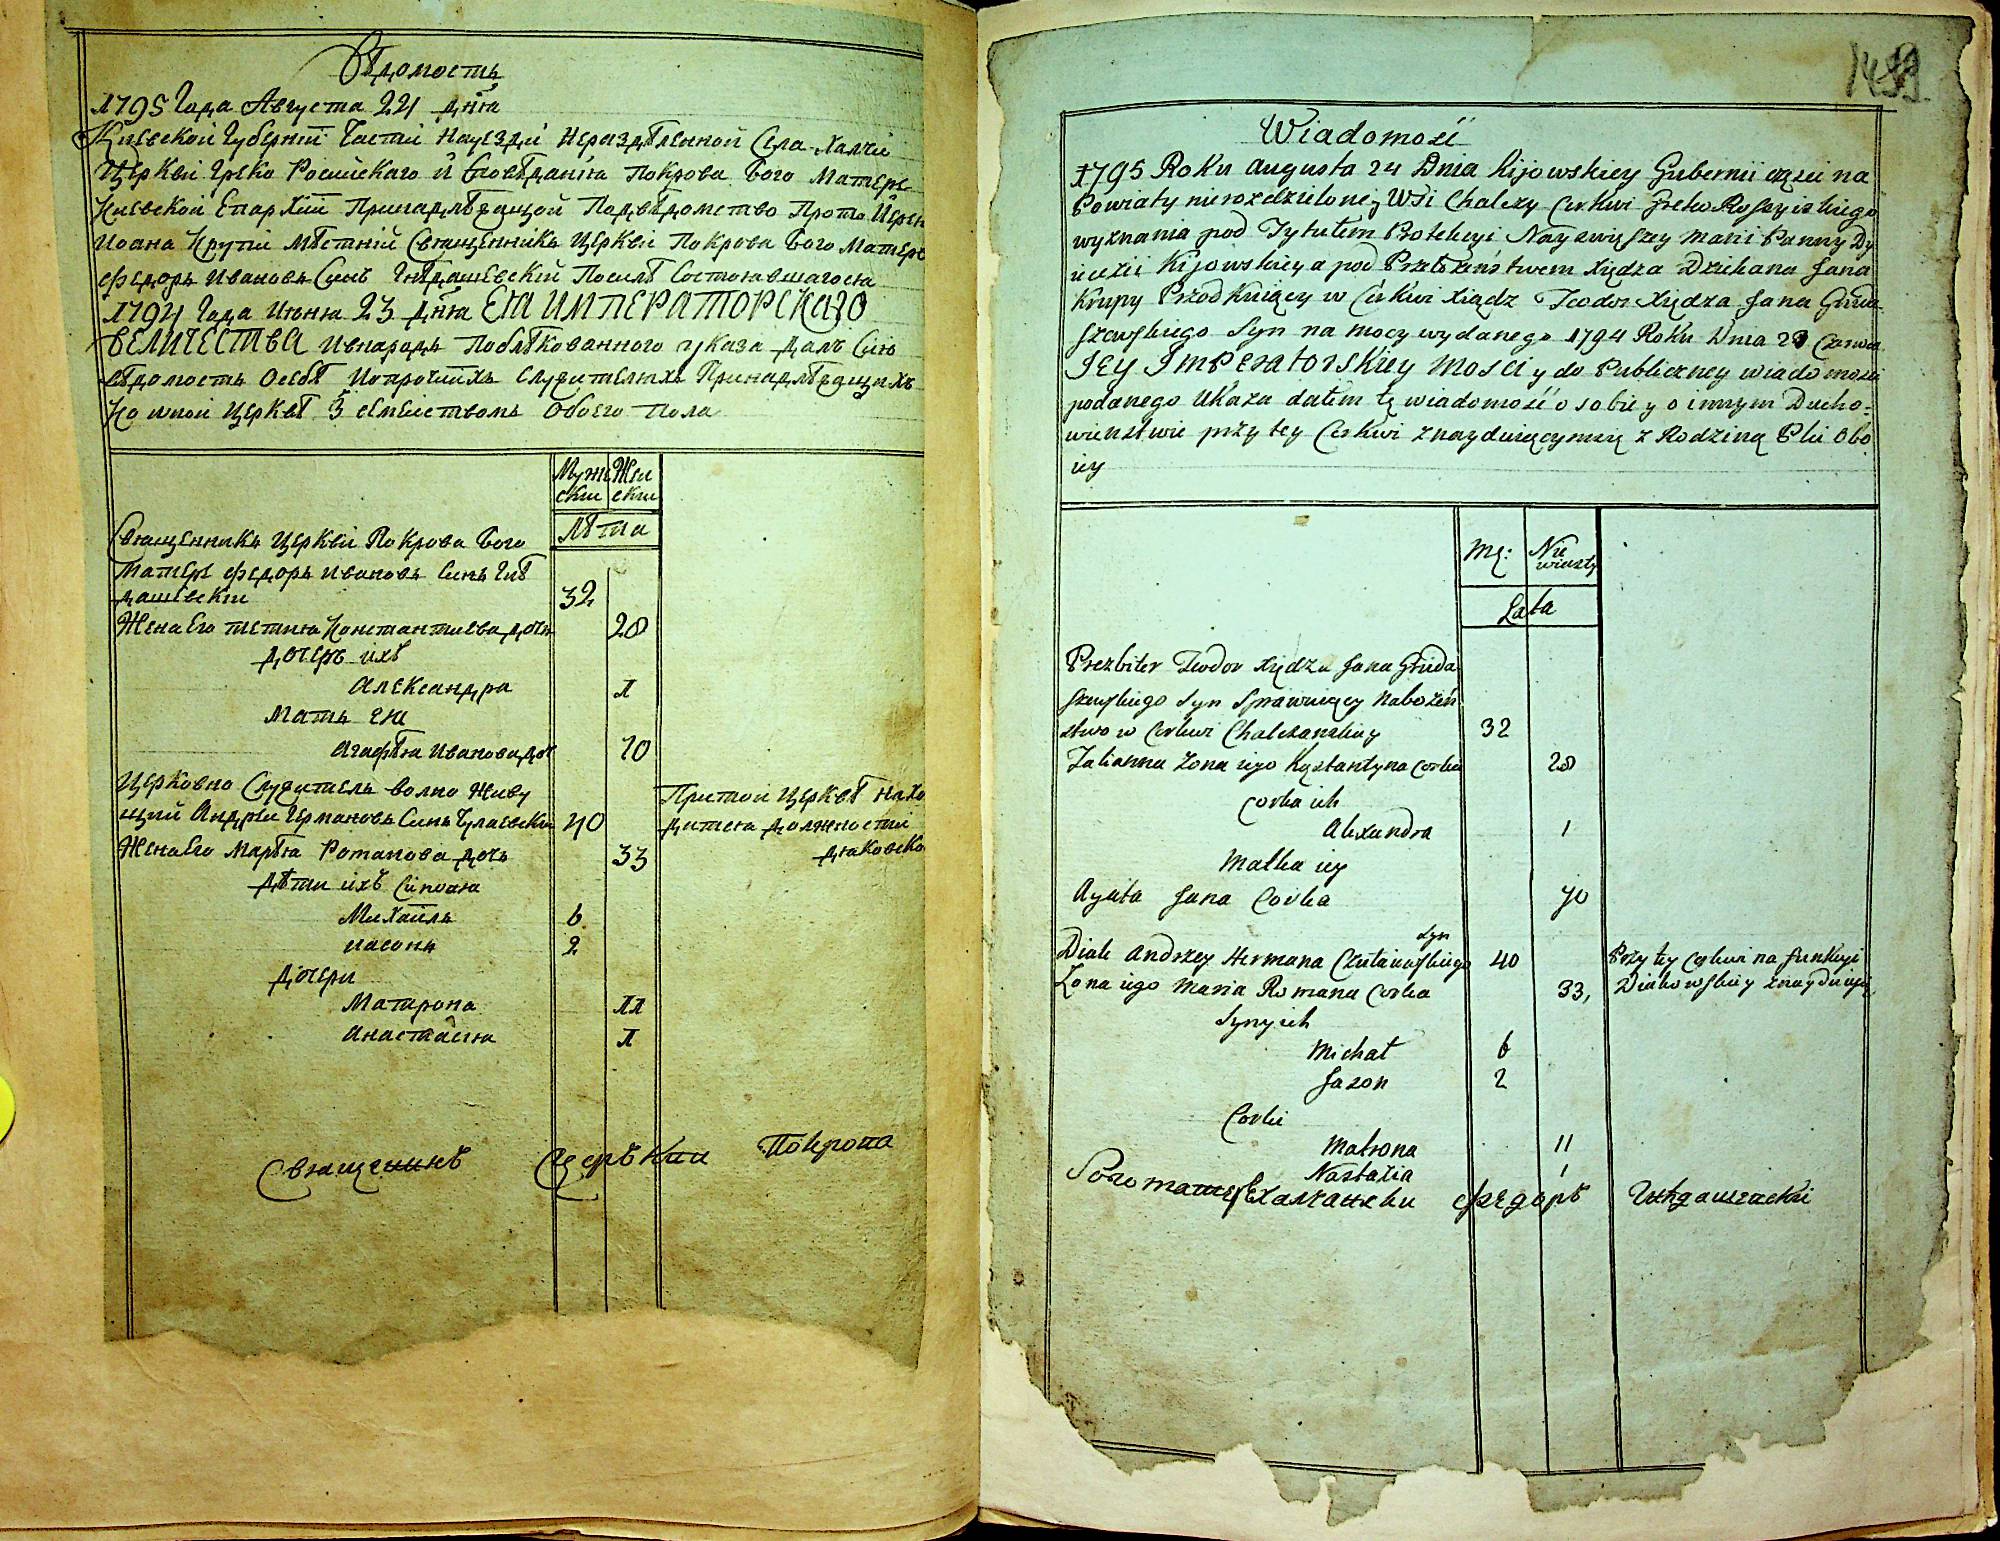 Вѣдомость
1795 Года Августа 24 дня
Киевской Губернїи Части Науезди Нераздѣленой Села Халчи
Церкви Греко Росийскаго Исповѣданїя Покрова Бого Матере
Киевской Епархїи Принадлѣжащой Подвѣдомство Прото Иерея
Иоана Крупи Мѣстнїй Священникъ Церкви Покрова Бого Матере
Федоръ Ивановъ Синъ Гнѣдашевскїй Посилѣ Состоявшагося
1794 Года Июня 23 дня ЕЯ ИМПЕРАТОРСКАГО
ВЕЛИЧЕСТВА ивнародъ Поблѣкованного указа далъ Сию
вѣдомость Осебѣ Ипрочиїхъ Служителяхъ Принадлѣжащихъ
Ко иной Церквѣ З семействомъ Обоего пола
Мужескии Женскии
Лѣта
Священникъ Церкви Покрова Бого
Матере Федоръ Ивановъ Синъ Гнѣ
дашевскїи 32
Жена Его Тетияна Константиева дочь 28
Дочерь ихъ
Александра 1
Мать ея
Агафѣя Иванова дочь 70
Церковно Служитель волно Живу
щий Андрѣи Германовъ Синъ Чулаевски 40
Притой Церквѣ Нахо
дится должностїи
дяковско
Жена Его Марѣя Романова дочь 33
Дѣти ихъ Синовя
Михаилъ 6
Иасонъ 2
Дочери
Матрона 11
Анастасия 1
Священикъ Церъкви Покрова
1489
Wiadomość
1795 Roku Augusta 24 Dnia Kijowskiey Gubernii części na
Powiaty nierozdzieloney Wsi Chalczy Cerkwi Greko Rossyiskiego
wyznania pod Tytułem Protekcyi Nayświęszey Marii Panny Dy
iecezii Kijowskiey a pod Przełożeństwem Xiędza Dziekana Jana
Krupy Przodkuiący w Cerkwi Xiądz Teodor Xiędza Jana Gnida
szewskiego Syn na mocy wydanego 1794 Roku Dnia 23 Czerwca
JEY IMPERATORSKIEY MOSCI y do Publiczney wiadomości
podanego Ukaza dałem tę wiadomość o sobie y o innym Ducho-
wieństwie przy tey Cerkwi znayduiącym się z Rodziną Płci Obo
iey
Mę: Niewiasty
Lata
Prezbiter Teodor Xiędza Jana Gnida
szewskiego Syn Sprawuiący Nabożeń
stwo w Cerkwi Chalczanskiey 32
Tatianna Zona iego Kąstantyna Corka 28
Corka ich
Alexandra 1
Matka iey
Agata Jana Corka 70
Diak Andrzey Hermana Czułaiewskiego syn 40
Przy tey Cerkwi na funkcyi
Diakowskiey znayduie się
Zona iego Maria Romana Corka 33,
Syny ich
Michał 6
Jazon 2
Corki
Matrona 11
Nastazia 1
Богоматере Халчански Федоръ Гнѣдашевски